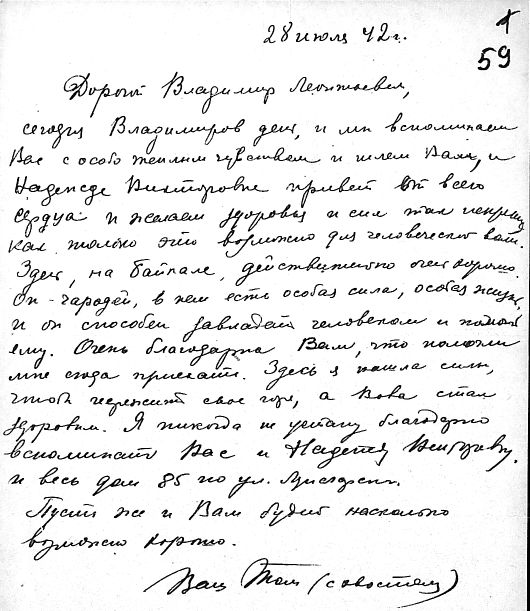 28 июля 42 г.
1
59
Дорогой Владимир Леонтьевич,
сегодня Владимиров день, и мы вспоминаем
Вас с особо теплым чувством и шлем Вам, и
Надежде Викторовне привет от всего
сердца и желаем здоровья и сил так искренно
как только это возможно для человеческой
Здесь, на Байкале, действительно очень хорошо.
Он - чародей, в нем есть особая сила, особая жизнь,
и он способен завладеть человеком и помочь
ему. Очень благодарна Вам, что помогли
мне сюда приехать. Здесь я нашла силы,
чтобы пережить свое горе, а Вова стал
здоровым. Я никогда не устану благодарно
вспоминать Вас и Надежду Викторовну.
и весь дом 85 по ул.
Пусть же и Вам будет насколько
возможно хорошо.
Ваш